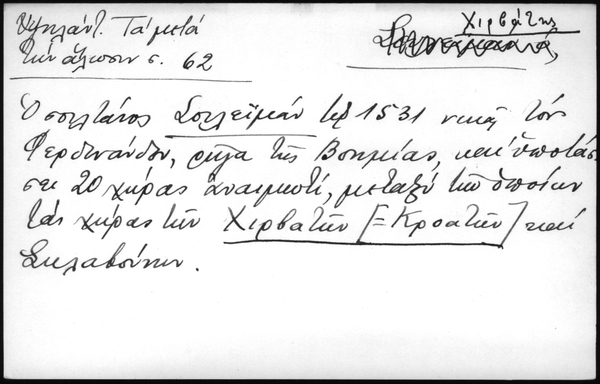 Ὑψηλάντ. Τὰ μετὰ
τὴν ἅλωσιν σ. 62
Χιρβάτης
Ὁ σουλτάνος Σουλεϊμὰν τῷ 1531 νικᾷ τὸν
Φερδινάνδον, ρῆγα τῆς Βοημίας, καὶ ὑποτάσ-
σει 20 χώρας ἀναιμωτί, μεταξὺ τῶν ὁποίων
τὰς χώρας τῶν Χιρβατῶν [=Κροατῶν] καὶ
Σκλαβούνων.